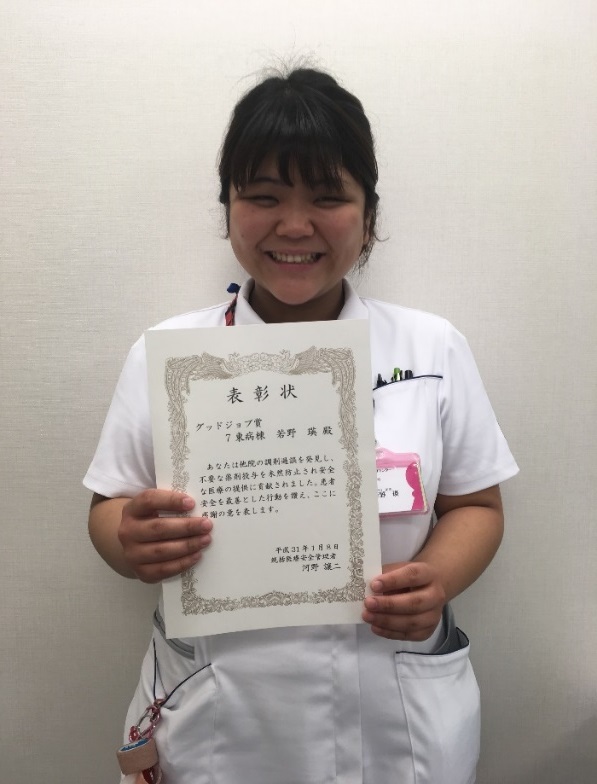 表彰状
グッドジョブ賞
7東病棟 若野 瑛 殿
あなたは他院の調剤過誤を発見し、
不要な薬剤投与を未然防止され安全
な医療の提供に貢献されました。患者
安全を最善とした行動を讃え、ここに
感謝の意を表します。
平成31年1月8日
統括医療安全管理者
河野 譲二